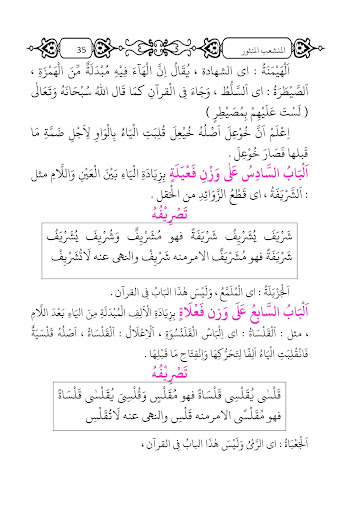 المنشعب المنثور 35
اَلْهَيْمَنَةُ : اى الشهادة ، يُقَالُ اِنَّ الْهَآءَ فِيْهِ مُبْدَلَةٌ مِّنَ الْهَمْزَةِ ،
اَلصَّيْطَرَةُ : اى اَلسَّلُّطُ ، وَجَاءَ فِى الْقُرآنِ كَمَا قَالَ اللهُ سُبْحَانَهُ وَتَعَالٰى
( لَسْتَ عَلَيْهِمْ بِمُصَيْطِرٍ )
اِعْلَمْ اَنَّ خُوْعِلَ اَصْلُهُ خُيْعِلَ قُلِبَتِ الْيَاءُ بِالْوَاوِ لِاَجْلِ ضَمَّةِ مَا
قَبلها فَصَارَ خُوْعِلَ .
اَلْبَابُ السَّادِسُ عَلٰى وَزْنِ فَعْيَلَةٍ بِزِيَادَةِ الْيَاءِ بَيْنَ الْعَيْنِ وَاللَّامِ مثل
: اَلشَّرْيَفَةُ ، اى قَطْعُ الزَّوَائِدِ من الْحَقْلِ .
تَصْرِيْفُهُ
شَرْيَفَ يُشَرْيِفُ شَرْيَفَةً فهو مُشَرْيِفٌ وَشُرْيِفَ يُشَرْيَفُ
شَرْيَفَةً فهو مُشَرْيَفٌ الامر منه شَرْيِفْ والنهى عنه لَاتُشَرْيِفْ
اَلْجَزْيَلَةُ : اى الْمُلَمَّعُ ، وَلَيْسَ هٰذَا الْبَابُ فِى القرآن .
اَلْبَابُ السَّابِعُ عَلٰى وَزن فَعْلَاةٍ بِزِيَادَةِ الْاَلِفِ الْمُبْدَلَةِ مِنَ الْيَاءِ بَعْدَ اللَّامِ
، مثل : اَلْقَلْسَاةُ : اى اِلْبَاسُ الْقَلَنْسُوَةِ ، اَلْاِعْلَالُ : اَلْقَلْسَاةُ ، اَصْلُهُ قَلْسَيَةٌ
فَانْقَلَبَتِ الْيَاءُ اَلِفًا لِتَحَرُّكِهَا وَانْفِتَاحِ مَا قَبْلِهَا .
تَصْرِيْفُهُ
قَلْسٰى يُقَلْسِى قَلْسَاةً فهو مُقَلْسٍ وَقُلْسِىَ يُقَلْسٰى قَلْسَاةً
فهو مُقَلْسًى الامر منه قَلْسِ والنهى عنه لَاتُقَلْسِ
اَلْجَعْبَاةُ : اى الرَّمْىُ وَلَيْسَ هٰذَا البابُ فى القرآن ،